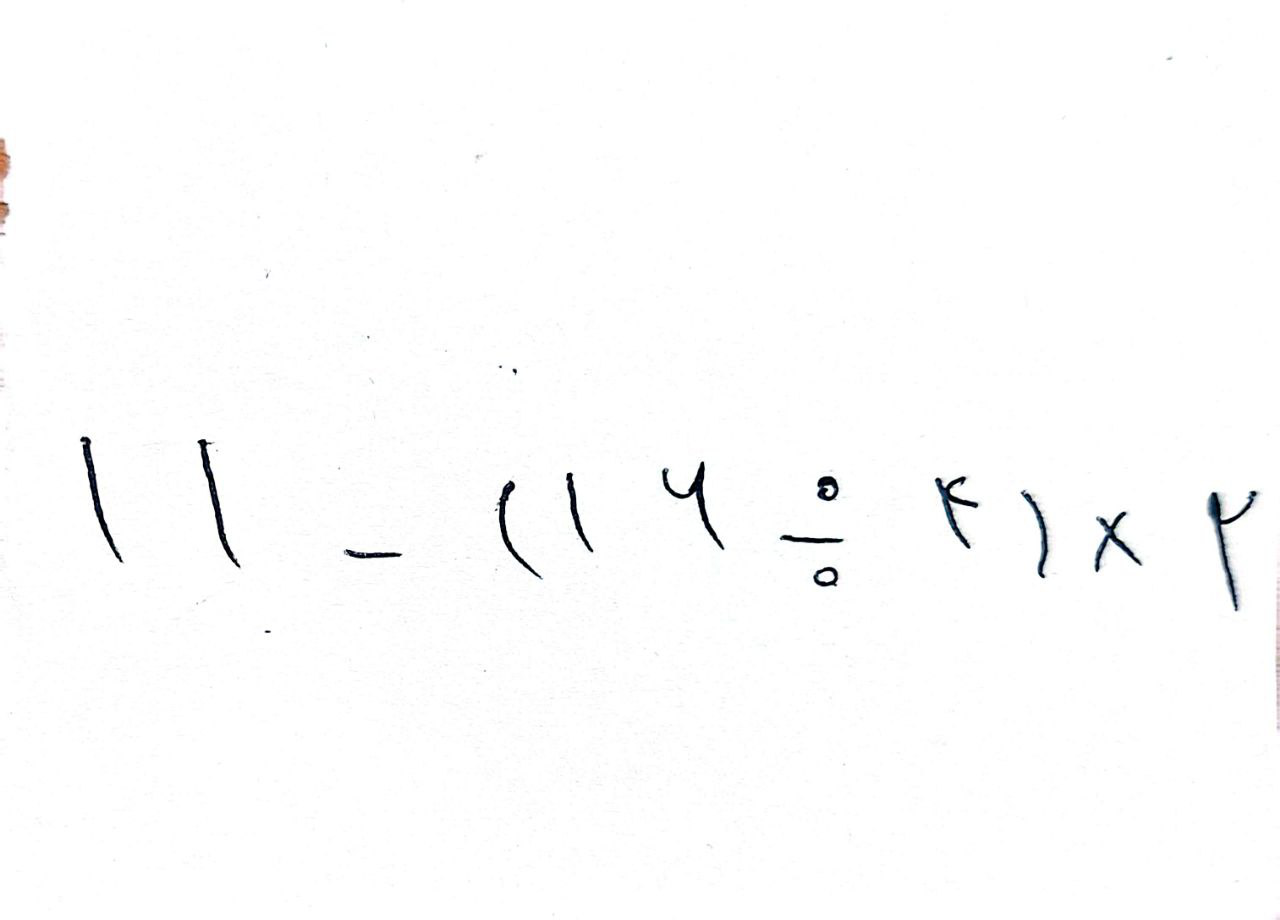 ۱۱ - (۱۶ ÷ ۴) × ۲